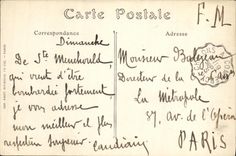 Carte Postale
F.M
Correspondance
Adresse
Dimanche
De Ste Menehould,
qui vient d'être
bombardée fortement
je vous adresse
mon meilleur et plus
respectueux
Monsieur
Directeur de la
La Métropole
37, Av. de l'Opéra
PARIS